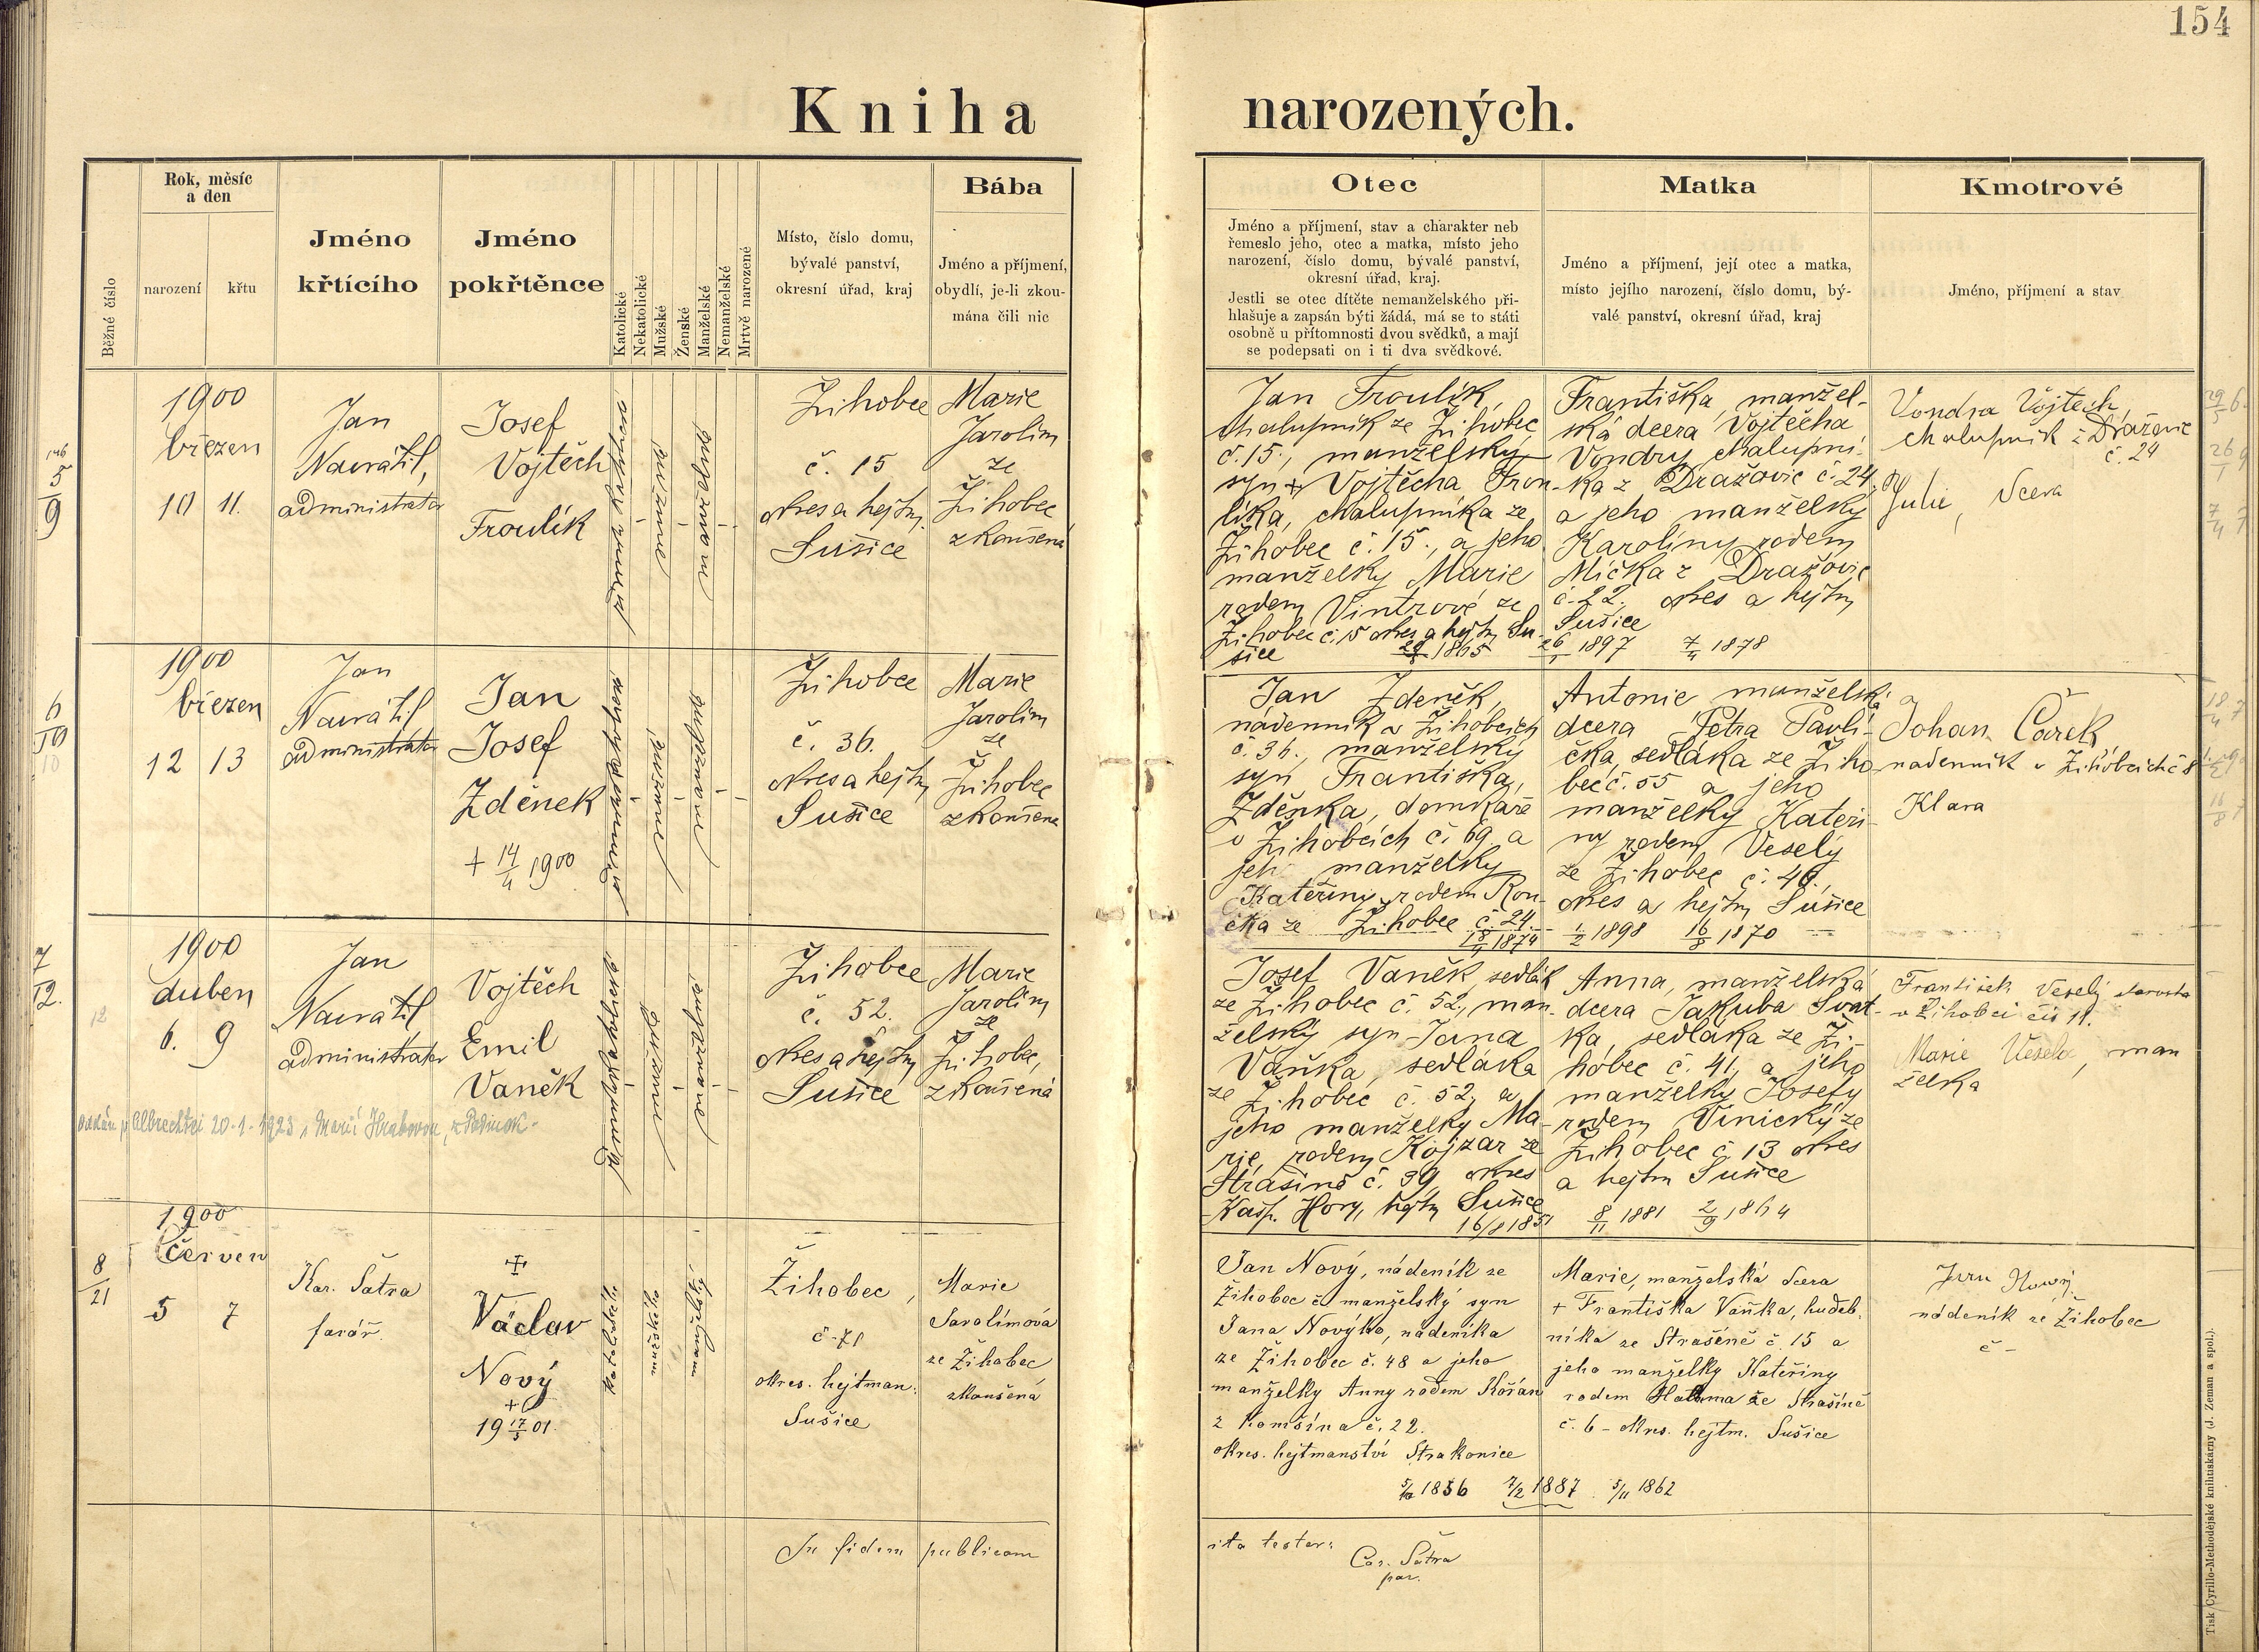 154
Kniha narozených.
Běžné číslo
Rok, měsíc
a den
narození
křtu
Jméno
křtícího
Jméno
pokřtěnce
Katolické
Nekatolické
Mužské
Ženské
Manželské
Nemanželské
Mrtvě narozené
Místo, číslo domu,
bývalé panství,
okresní úřad, kraj
Bába
Jméno a příjmení,
obydlí, je-li zkou-
mána čili nic
Otec
Jméno a příjmení, stav a charakter neb
řemeslo jeho, otec a matka, místo jeho
narození, číslo domu, bývalé panství,
okresní úřad, kraj.
Jestli se otec dítěte nemanželského při-
hlašuje a zapsán býti žádá, má se to státi
osobně u přítomnosti dvou svědků, a mají
se podepsati on i ti dva svědkové.
Matka
Jméno a příjmení, její otec a matka,
místo jejího narození, číslo domu, bý-
valé panství, okresní úřad, kraj
Kmotrové
Jméno, příjmení a stav
5
9
1900
březen
10 11.
Jan
Navrátil,
administrator
Josef
Vojtěch
Froulík
Žihobec
č. 15
okres a hejtm
Sušice
Marie
Jarolím
ze
Žihobec
zkoušená
Jan Froulík,
chalupník ze Žihobec
č. 15., manželský
syn + Vojtěcha Frou-
líka, chalupníka ze
Žihobec č. 15., a jeho
manželky Marie
rodem Vintrové ze
Žihobec č. 15 okres a hejtm Su-
šice 1865
Františka, manžel-
ská dcera Vojtěcha
Vondry chalupní-
ka z Dražovic č. 24,
a jeho manželky
Karolíny rodem
Mička z Dražovic
č. 22. okres a hejtm
Sušice
26/1 1897 7/4 1878
Vondra Vojtěch
chalupník z Dražovic
č. 24
Julie, dcera
6
10
1900
březen
12 13
Jan
Navrátil
administrator
Jan
Josef
Zdeněk
+ 14/4 1900
Žihobec
č. 36.
okres a hejtm
Sušice
Marie
Jarolím
ze
Žihobec
zkoušena
Jan Zdeněk,
nádenník v Žihobcích
č. 36., manželský
syn Františka
Zdeňka, domkáře
v Žihobcích č. 69 a
jeho manželky
Kateřiny, rodem Rou-
čka ze Žihobec č. 24.
1874
Antonie manželská
dcera Petra Pavlí-
čka, sedláka ze Žiho-
bec č. 55 a jeho
manželky Kateři-
ny rodem Veselý
ze Žihobec č. 46,
okres a hejtm Sušice
1/2 1898 16/8 1870
Johan Čarek
nadenník v Žihobcích č 8
Klara
7
12.
1900
duben
6. 9
Jan
Navrátil
administrator
Vojtěch
Emil
Vaněk
Žihobce
č. 52.
okres a hejtm
Sušice
Marie
Jarolím
ze
Žihobec,
zkoušená
Albrechtici 20.1.1923
Josef Vaněk, sedlák
ze Žihobec č. 52., man-
želský syn Jana
Vaňka, sedláka
ze Žihobec č. 52, a
jeho manželky Ma-
rie, rodem Kojzar ze
Strašína č. 39, okres
Kašp. Hory, hejtm Sušice
Anna, manželská
dcera Jakuba Svat-
ka, sedláka ze Ži-
hobec č. 41, a jeho
manželky Josefy
rodem Vinický ze
Žihobec č. 13 okres
a hejtm Sušice
8/11 1881 2/9 1864
František Veselý starosta
v Žihobci čís 11.
Marie Veselá, man
želka
8
21
1900
Červen
5 7
Kar. Šatra
farář.
Václav
Nový
+
19 17/5 01.
katolické
mužské
manželské
Žihobec,
č. 71
okres. hejtman.
Sušice
Marie
Jarolímová
ze Žihobec
zkoušená
Jan Nový, nádeník ze
Žihobec č. manželský syn
Jana Novýho, nádeníka
ze Žihobec č. 48 a jeho
manželky Anny rodem Kořán
z Homšína č. 22.
okres. hejtmanství Strakonice
Marie, manželská dcera
+ Františka Vaňka, hudeb-
níka ze Strašíně č. 15 a
jeho manželky Kateřiny
rodem ze Strašíně
č. 6 - okres. hejtm. Sušice
1856 7/2 1887 5/11 1862
Jan Nowý,
nádeník ze Žihobec
č -
In fidem publicam
ita testor:
Car. Šatra
par.
Tisk Cyrillo-Methodějské knihtiskárny (J. Zeman a spol.).